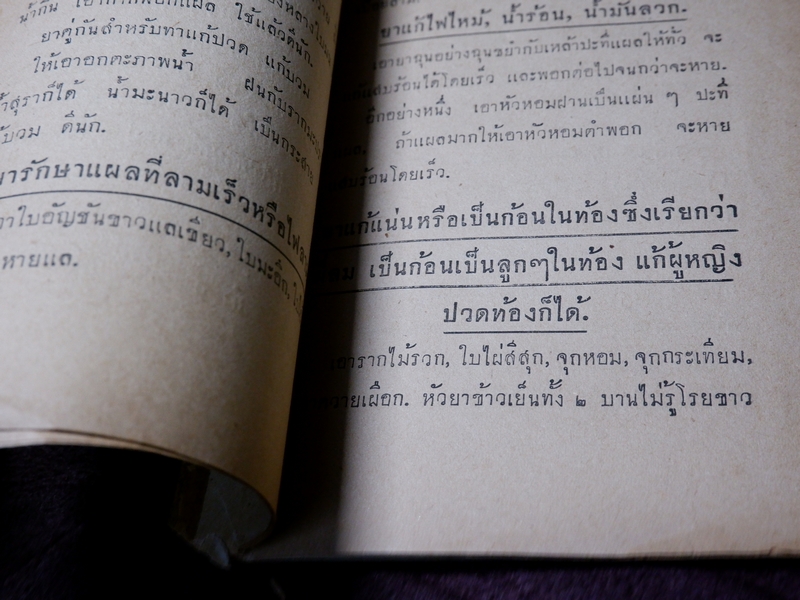 น้ำกิน
ใช้แล้วดีนัก.
ยาคู่กันสำหรับทาแก้ปวด แก้บวม
ให้เอาอกตะภาพน้ำ ฝนกับรากมะนาว
สุราก็ได้ น้ำมะนาวก็ได้ เป็นกระสาย
บวม ดีนัก.
ยารักษาแผลที่ลามเร็วหรือไฟลาม
ใบอัญชันขาวแลเขียว, ใบมะอึก,
หายแล.
ยาแก้ไฟไหม้, น้ำร้อน, น้ำมันลวก.
เอายาฉุนอย่างฉุนขยำกับเหล้าปะที่แผลให้ทั่ว จะ
แสบร้อนได้โดยเร็ว และพอกต่อไปจนกว่าจะหาย.
อีกอย่างหนึ่ง เอาหัวหอมฝานเป็นแผ่น ๆ ปะที่
ถ้าแผลมากให้เอาหัวหอมตำพอก จะหาย
ร้อนโดยเร็ว.
แก้แน่นหรือเป็นก้อนในท้องซึ่งเรียกว่า
เป็นก้อนเป็นลูกๆในท้อง แก้ผู้หญิง
ปวดท้องก็ได้.
เอารากไม้รวก, ใบไผ่สีสุก, จุกหอม, จุกกระเทียม,
เผือก. หัวยาข้าวเย็นทั้ง ๒ บานไม่รู้โรยขาว